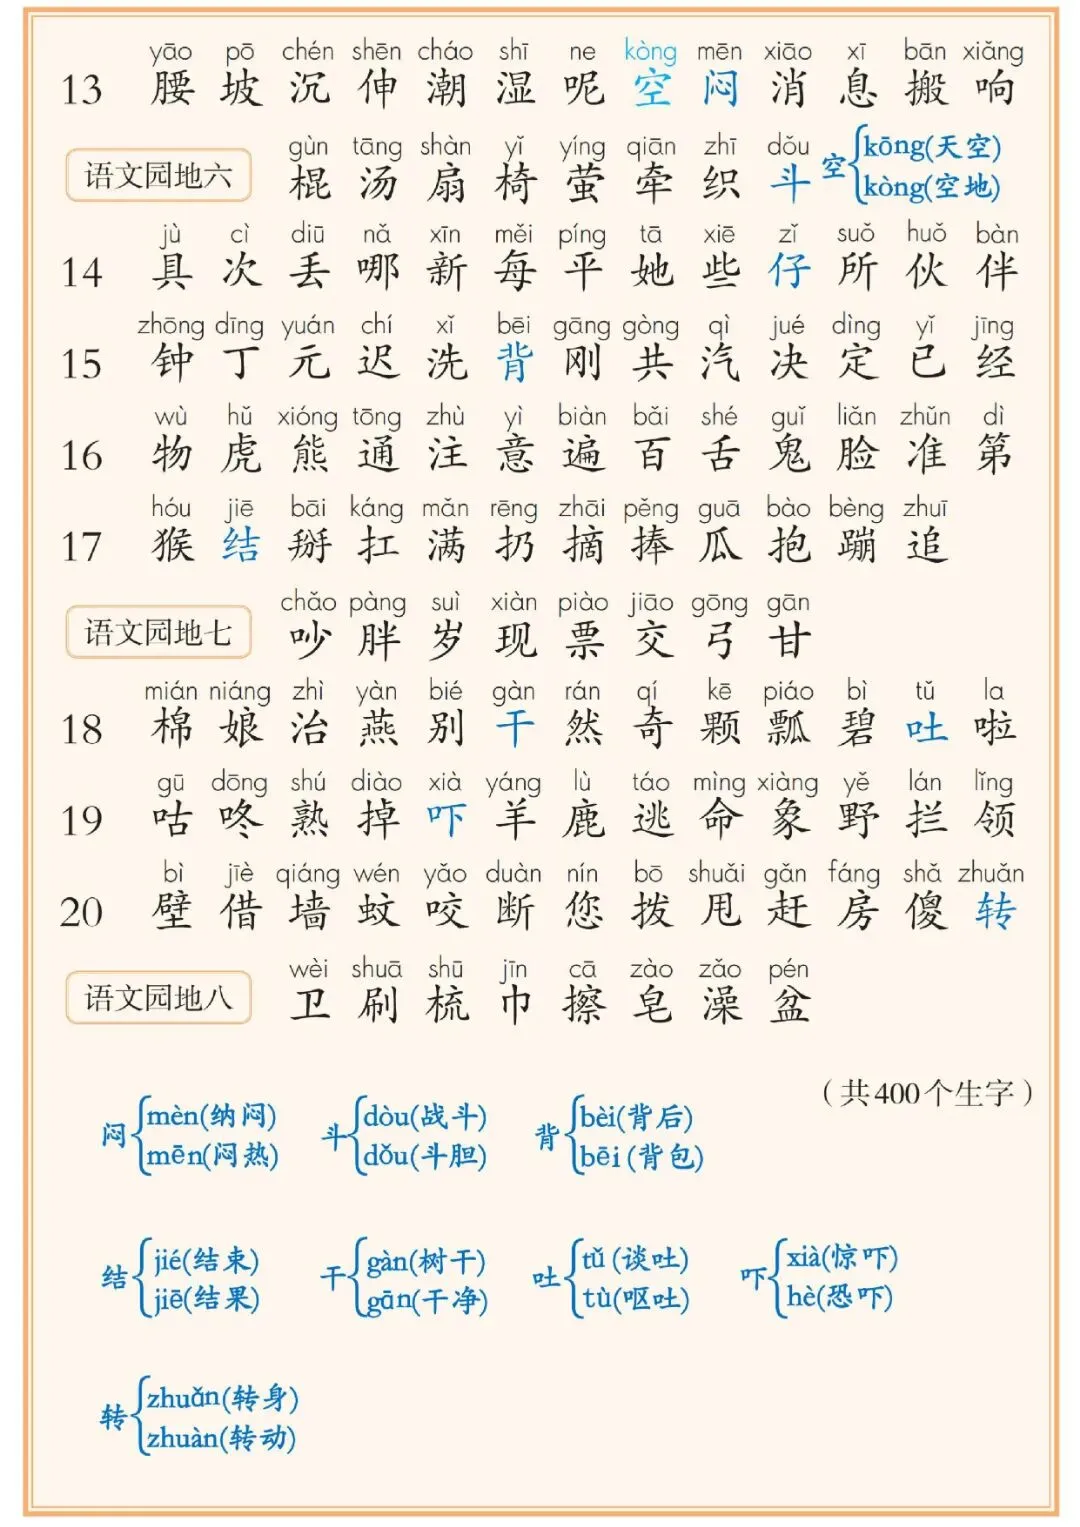 yāo pō chén shēn cháo shī ne kòng mēn xiāo xī bān xiǎng
13 腰 坡 沉 伸 潮 湿 呢 空 闷 消 息 搬 响
gùn tāng shàn yǐ yíng qiān zhī dǒu
语文园地六 棍 汤 扇 椅 萤 牵 织 斗
空 kōng(天空)
kòng(空地)
jù cì diū nǎ xīn měi píng tā xiē zǐ suǒ huǒ bàn
14 具 次 丢 哪 新 每 平 她 些 仔 所 伙 伴
zhōng dīng yuán chí xǐ bēi gāng gòng qì jué dìng yǐ jīng
15 钟 丁 元 迟 洗 背 刚 共 汽 决 定 已 经
wù hǔ xióng tōng zhù yì biàn bǎi shé guǐ liǎn zhǔn dì
16 物 虎 熊 通 注 意 遍 百 舌 鬼 脸 准 第
hóu jiē bāi káng mǎn rēng zhāi pěng guā bào bèng zhuī
17 猴 结 掰 扛 满 扔 摘 捧 瓜 抱 蹦 追
chǎo pàng suì xiàn piào jiāo gōng gān
语文园地七 吵 胖 岁 现 票 交 弓 甘
mián niáng zhì yàn bié gàn rán qí kē piáo bì tǔ la
18 棉 娘 治 燕 别 干 然 奇 颗 瓢 碧 吐 啦
gū dōng shú diào xià yáng lù táo mìng xiàng yě lán lǐng
19 咕 咚 熟 掉 吓 羊 鹿 逃 命 象 野 拦 领
bì jiè qiáng wén yǎo duàn nín bō shuǎi gǎn fáng shǎ zhuǎn
20 壁 借 墙 蚊 咬 断 您 拨 甩 赶 房 傻 转
wèi shuā shū jīn cā zào zǎo pén
语文园地八 卫 刷 梳 巾 擦 皂 澡 盆
（共400个生字）
闷 mèn(纳闷)
mēn(闷热)
斗 dòu(战斗)
dǒu(斗胆)
背 bèi(背后)
bēi(背包)
结 jié(结束)
jiē(结果)
干 gàn(树干)
gān(干净)
吐 tǔ(谈吐)
tù(呕吐)
吓 xià(惊吓)
hè(恐吓)
转 zhuǎn(转身)
zhuàn(转动)